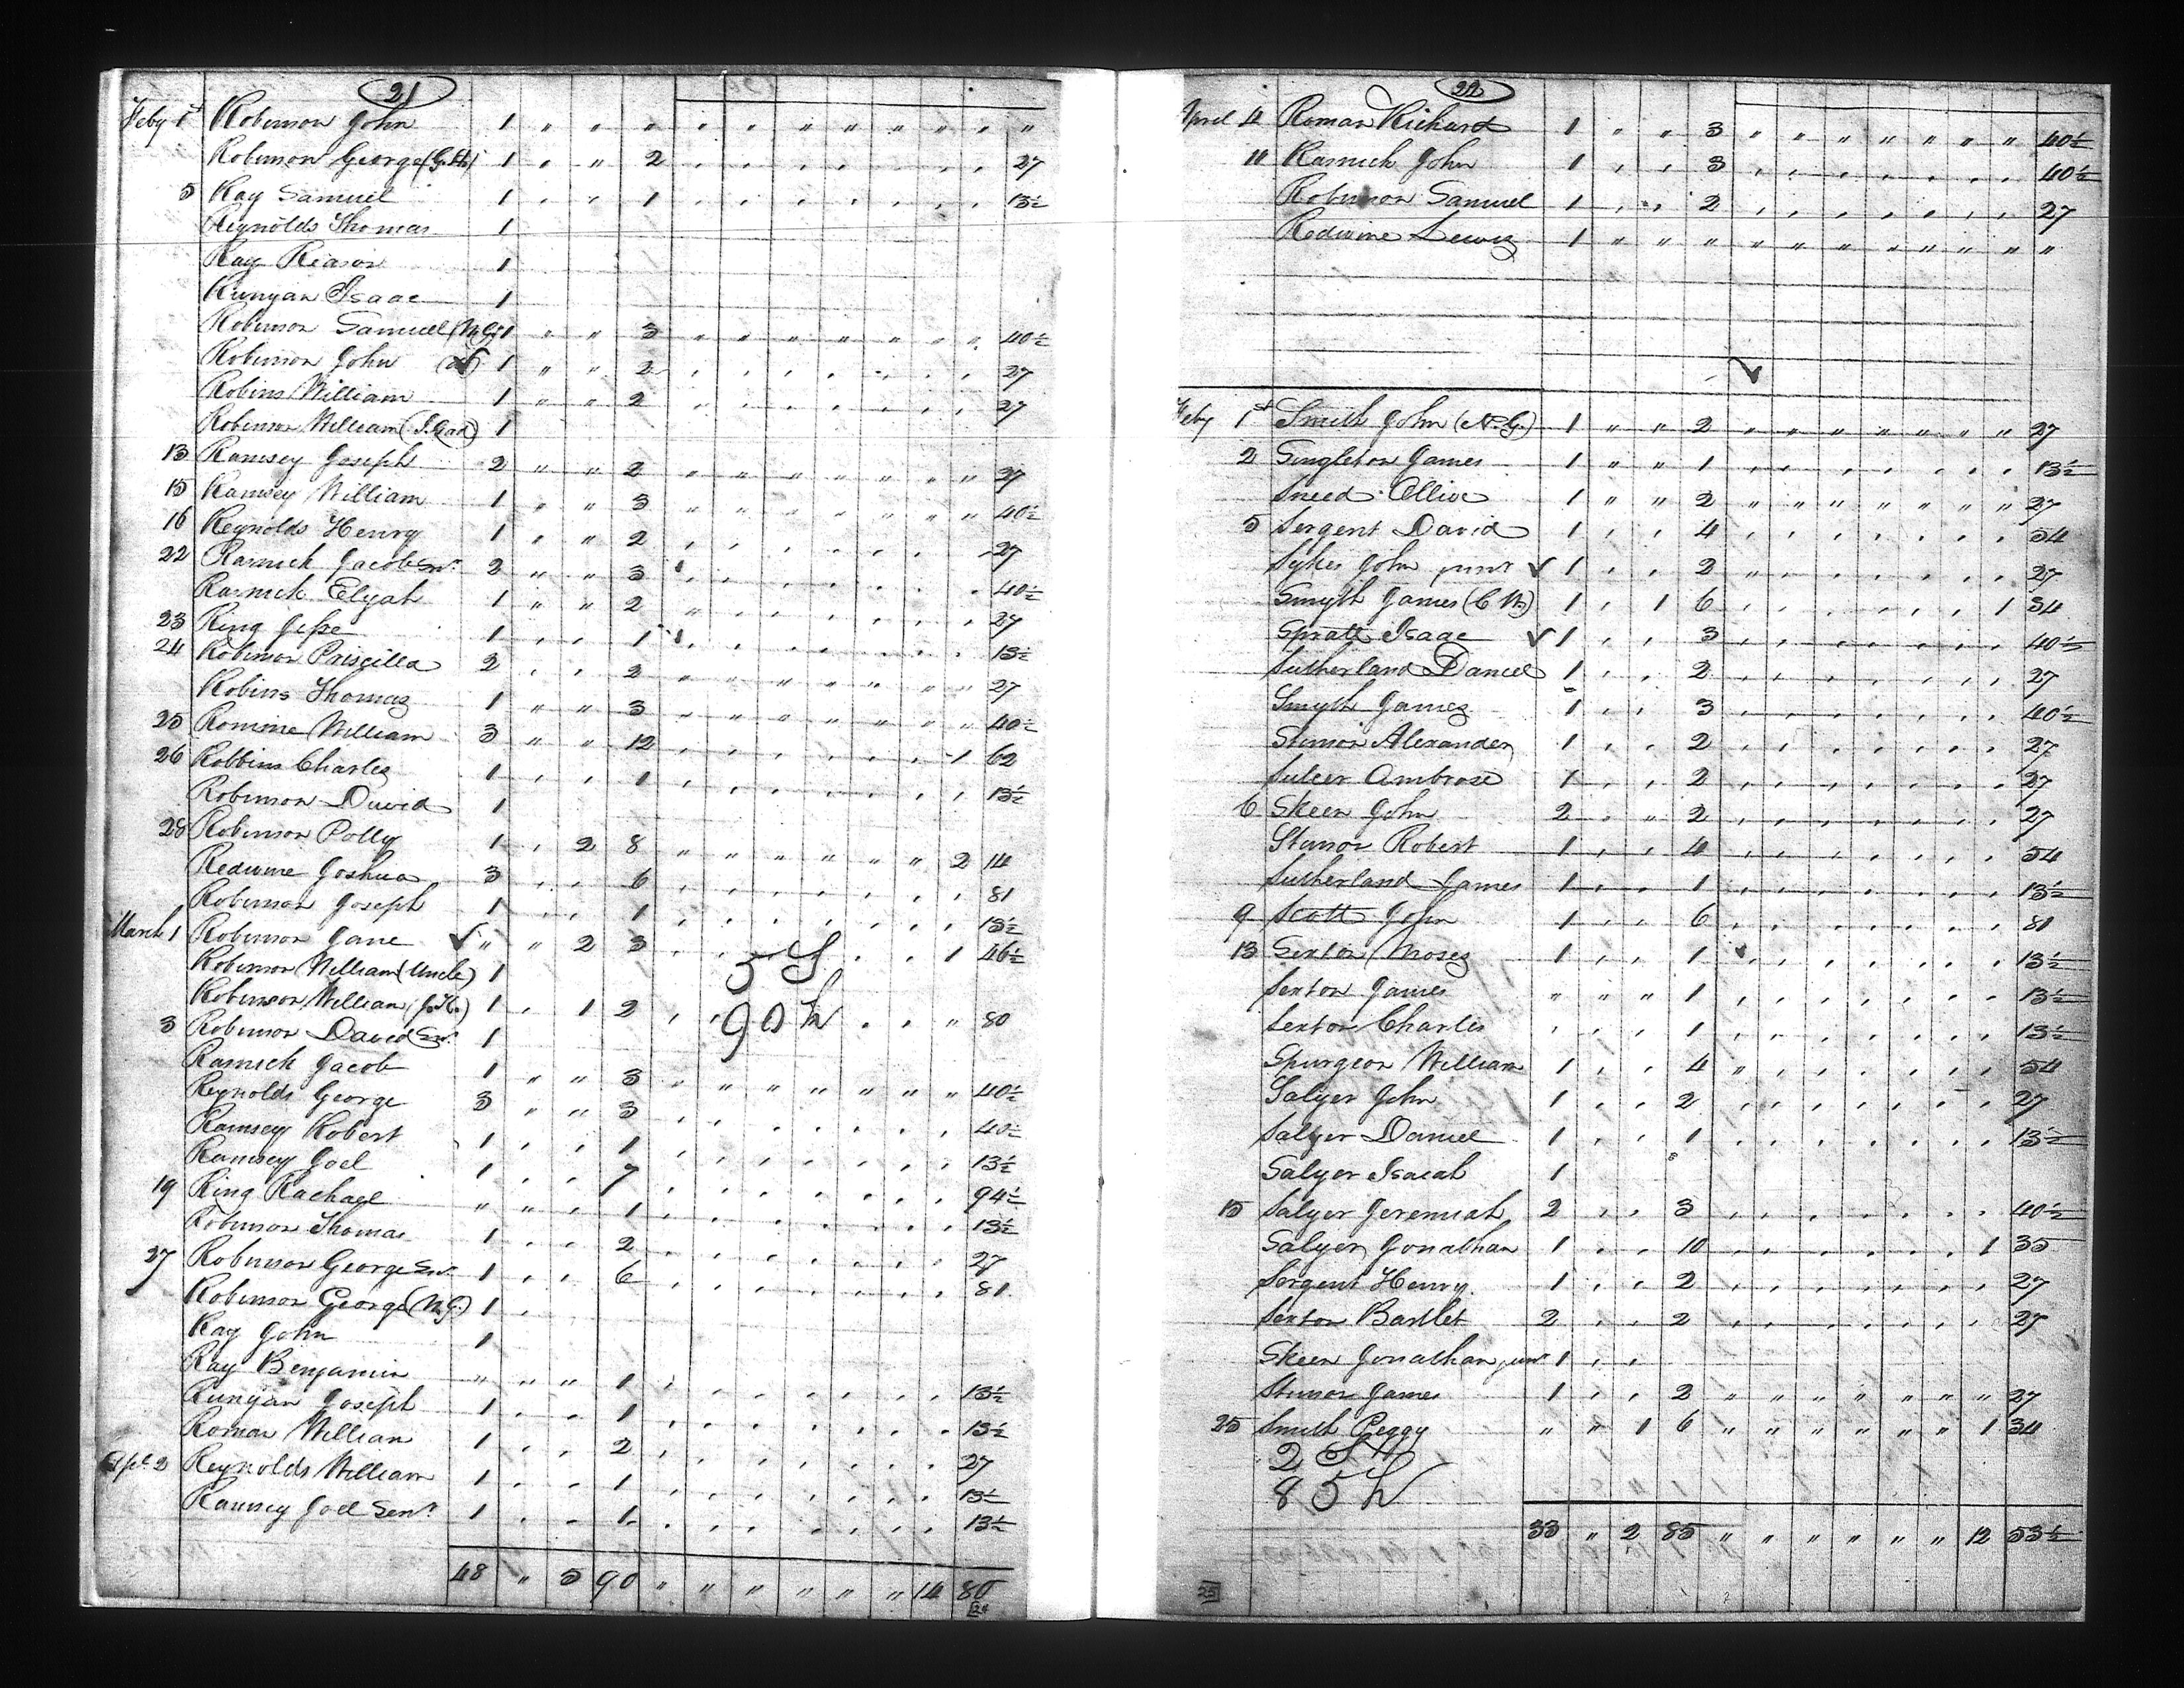 21
Feby 1st Robinson John 1 " " " " " " " " " " "
Robinson George (G.H.) 1 " " 2 " " " " " " " 27
5 Ray Samuel 1 " " 1 " " " " " " " 13½
Reynolds Thomas 1
Ray Reason 1
Runyan Isaac 1
Robinson Samuel (N.G.) 1 " " 3 " " " " " " " 40½
Robinson John 1 " " 2 " " " " " " " 27
Robins William 1 " " 2 " " " " " " " 27
Robinson William 1
13 Ramsey Joseph 2 " " 2 " " " " " " " 27
15 Ramsey William 1 " " 3 " " " " " " " 40½
16 Reynolds Henry 1 " " 2 " " " " " " " 27
22 Rasnick Jacob Snr. 2 " " 3 " " " " " " " 40½
Rasnick Elijah 1 " " 2 " " " " " " " 27
23 King Jesse 1 " " 1 " " " " " " " 13½
24 Robinson Priscilla 2 " " 2 " " " " " " " 27
Robins Thomas 1 " " 3 " " " " " " " 40½
25 Romine William 3 " " 12 " " " " " " 1 62
26 Robbins Charles 1 " " 1 " " " " " " " 13½
Robinson David 1
28 Robinson Polly 1 " 2 8 " " " " " " 2 14
Redwine Joshua 3 " " 6 " " " " " " " 81
Robinson Joseph 1 " " 1 " " " " " " " 13½
March 1 Robinson Jane ✓ " " 2 3 " " " " " " 1 46½
5 S
Robinson William (Uncle) 1
Robinson William (J.H.) 1 " 1 2 " " " " " " " 80
90 h
3 Robinson David Snr. 1
Rasnick Jacob 1 " " 3 " " " " " " " 40½
Reynolds George 3 " " 3 " " " " " " " 40½
Ramsey Robert 1 " " 1 " " " " " " " 13½
Ramsey Joel 1 " " 7 " " " " " " " 94½
19 King Rachael " " " 1 " " " " " " " 13½
Robinson Thomas 1 " " 2 " " " " " " " 27
27 Robinson George Snr. 1 " " 6 " " " " " " " 81
Robinson George (N.G.) 1 "
Ray John 1
Ray Benjamin " " " 1 " " " " " " " 13½
Runyan Joseph 1 " " 1 " " " " " " " 13½
Roman William 1 " " 2 " " " " " " " 27
Apl. 2 Reynolds William 1 " " 1 " " " " " " " 13½
Ramsey Joel Senr. 1 " " 1 " " " " " " " 13½
48 " 5 90 " " " " " " 14 80
24
22
April 4 Roman Richard 1 " " 3 " " " " " " " 40½
11 Rasnick John 1 " " 3 " " " " " " " 40½
Robinson Samuel 1 " " 2 " " " " " " " 27
Redwine Lewis 1 " " " " " " " " " " "
✓
Feby 1st Smith John (N.G.) 1 " " 2 " " " " " " " 27
2 Singleton James 1 " " 1 " " " " " " " 13½
Sneed Ollive 1 " " 2 " " " " " " " 27
5 Sergent David 1 " " 4 " " " " " " " 54
Sykes John junr ✓ 1 " " 2 " " " " " " " 27
Smyth James 1 " 1 6 " " " " " " 1 34
Spratt Isaac ✓ 1 " " 3 " " " " " " " 40½
Sutherland Daniel 1 " " 2 " " " " " " " 27
Smyth James 1 " " 3 " " " " " " " 40½
Stinson Alexander 1 " " 2 " " " " " " " 27
Sulcer Ambrose 1 " " 2 " " " " " " " 27
6 Skeen John 2 " " 2 " " " " " " " 27
Stinson Robert 1 " " 4 " " " " " " " 54
Sutherland James 1 " " 1 " " " " " " " 13½
9 Scott John 1 " " 6 " " " " " " " 81
13 Sexton Moses 1 " " 1 " " " " " " " 13½
Sexton James " " " 1 " " " " " " " 13½
Sexton Charles " " " 1 " " " " " " " 13½
Spurgeon William 1 " " 4 " " " " " " " 54
Salyer John 1 " " 2 " " " " " " " 27
Salyer Daniel 1 " " 1 " " " " " " " 13½
Salyer Isaiah 1
15 Salyer Jeremiah 2 " " 3 " " " " " " " 40½
Salyer Jonathan 1 " " 10 " " " " " " 1 35
Sergent Henry 1 " " 2 " " " " " " " 27
Sexton Bartlet 2 " " 2 " " " " " " " 27
Skeen Jonathan junr 1 " "
Stinson James 1 " " 2 " " " " " " " 27
25 Smith Peggy " " 1 6 " " " " " " 1 34
2 S
85 h
33 " 2 85 " " " " " " 12 53½
25